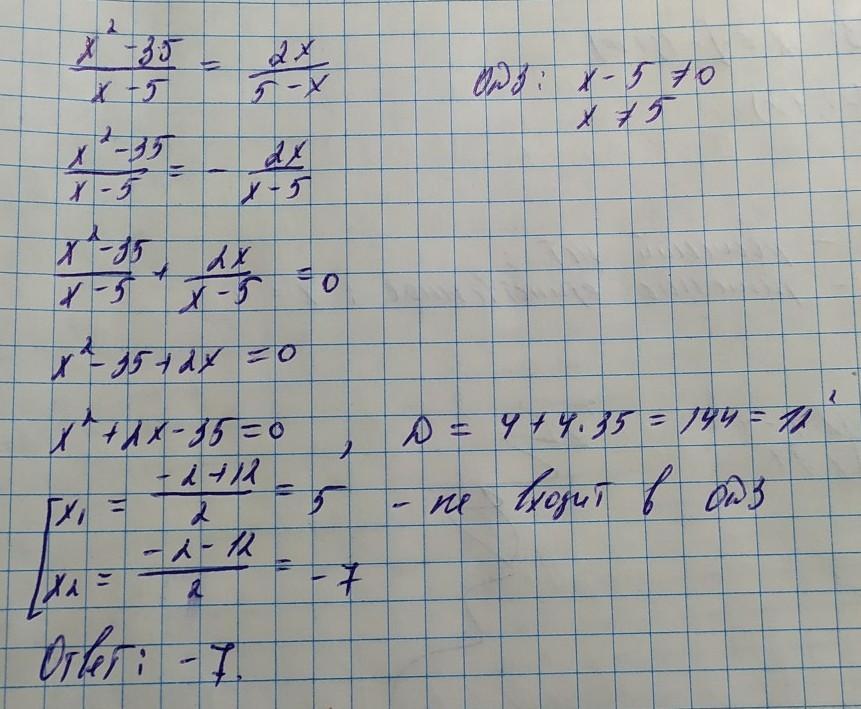 x² - 35 / x - 5 = 2x / 5 - x   ОДЗ: x - 5 ≠ 0
x ≠ 5
x² - 35 / x - 5 = - 2x / x - 5
x² - 35 / x - 5 + 2x / x - 5 = 0
x² - 35 + 2x = 0
x² + 2x - 35 = 0 , D = 4 + 4·35 = 144 = 12²
[ x₁ = -2 + 12 / 2 = 5 - не входит в ОДЗ
x₂ = -2 - 12 / 2 = -7
Ответ: -7.